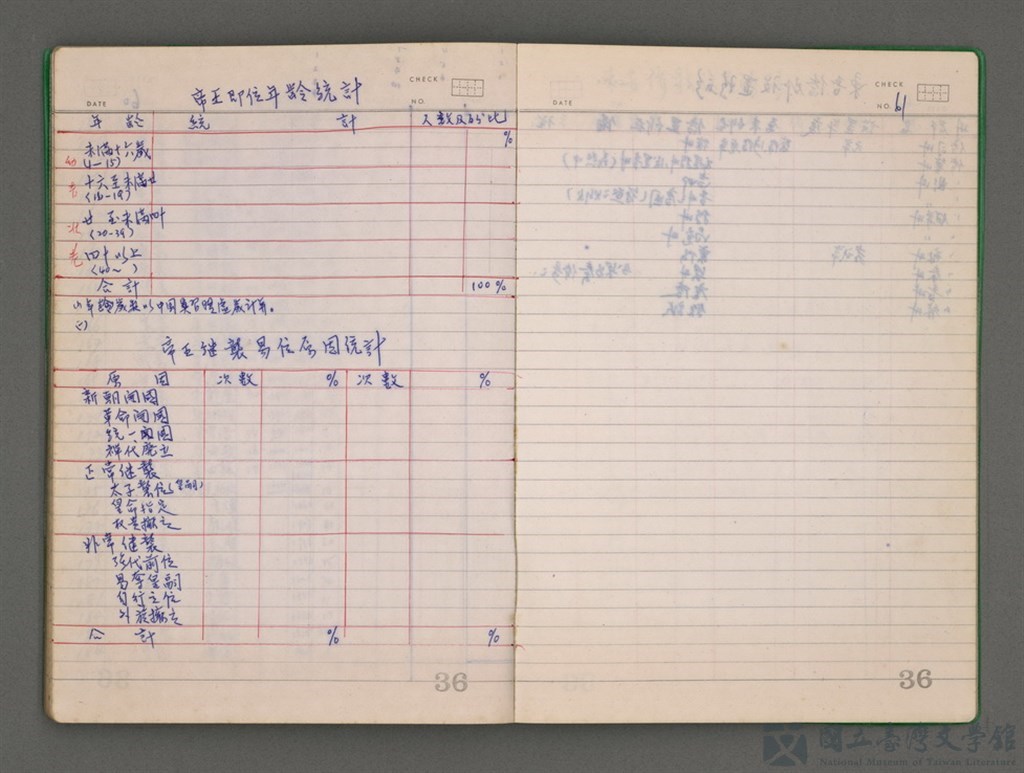 CHECK
DATE
NO.
帝王即位年齡統計
年 齡 統 計 人數及百分比
%
幼 未滿十六歲
(1—15)
青 十六至未滿廿
(16—19)
壯 廿至未滿卌
(20—39)
老 四十以上
(40~ )
合計 100%
(1)年齡歲數以中國舊習慣虛歲計算。
(2)
帝王繼襲易位原因統計
原 因 次數 % 次數 %
新朝開國
革命開國
統一開國
禪代廢立
正常繼襲
太子襲位(皇嗣)
皇命指定
权貴擁立
外常繼襲
強代前位
易季皇嗣
自行立位
外族擁立
合 計 % %
36
CHECK
DATE
NO. 61
36
國立臺灣文學館
National Museum of Taiwan Literature